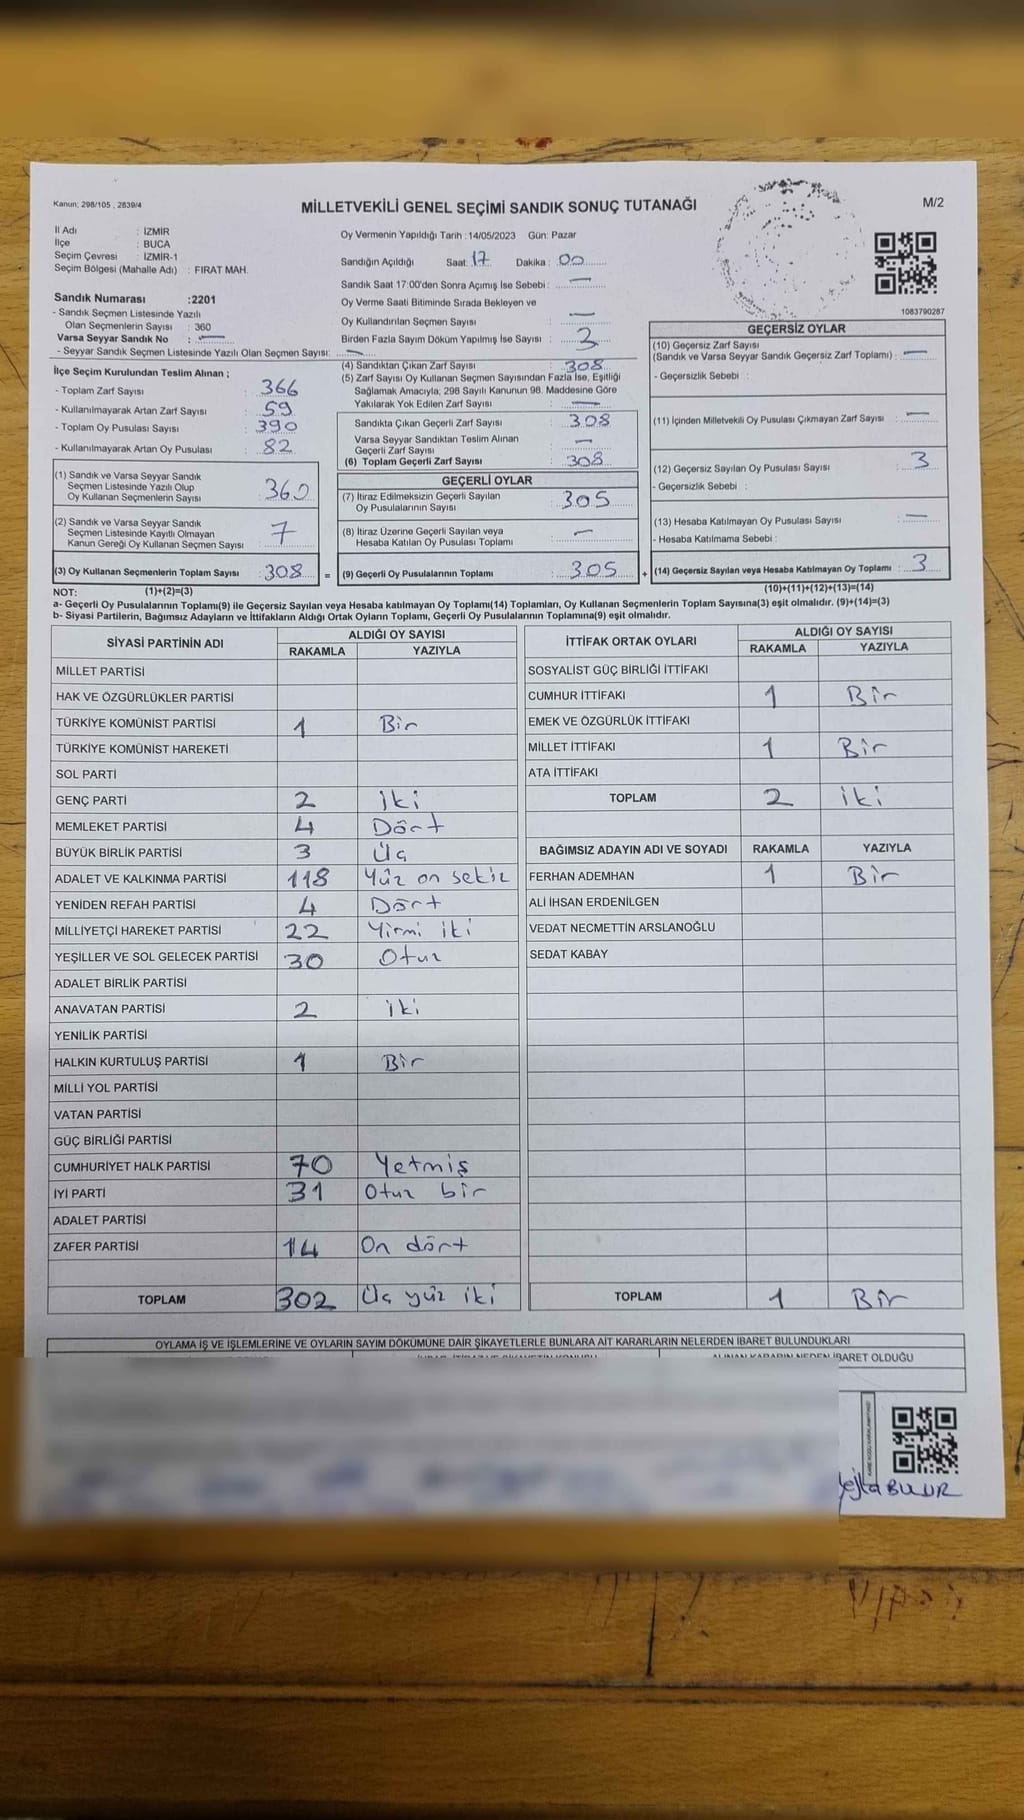 Kanun; 298/105 , 2839/4
MİLLETVEKİLİ GENEL SEÇİMİ SANDIK SONUÇ TUTANAĞI
M/2
İl Adı : İZMİR
İlçe : BUCA
Seçim Çevresi : İZMİR-1
Seçim Bölgesi (Mahalle Adı) : FIRAT MAH.
Sandık Numarası :2201
- Sandık Seçmen Listesinde Yazılı
Olan Seçmenlerin Sayısı : 360
Varsa Seyyar Sandık No : —
- Seyyar Sandık Seçmen Listesinde Yazılı Olan Seçmen Sayısı: —
Oy Vermenin Yapıldığı Tarih :14/05/2023 Gün: Pazar
Sandığın Açıldığı Saat: 17 Dakika : 00
Sandık Saat 17:00'den Sonra Açımış İse Sebebi : —
Oy Verme Saati Bitiminde Sırada Bekleyen ve
Oy Kullandırılan Seçmen Sayısı —
Birden Fazla Sayım Döküm Yapılmış İse Sayısı : 3
1083790287
İlçe Seçim Kurulundan Teslim Alınan ;
- Toplam Zarf Sayısı : 366
- Kullanılmayarak Artan Zarf Sayısı : 59
- Toplam Oy Pusulası Sayısı : 390
- Kullanılmayarak Artan Oy Pusulası : 82
(1) Sandık ve Varsa Seyyar Sandık
Seçmen Listesinde Yazılı Olup
Oy Kullanan Seçmenlerin Sayısı : 360
(2) Sandık ve Varsa Seyyar Sandık
Seçmen Listesinde Kayıtlı Olmayan
Kanun Gereği Oy Kullanan Seçmen Sayısı : 7
(3) Oy Kullanan Seçmenlerin Toplam Sayısı : 308 =
(4) Sandıktan Çıkan Zarf Sayısı : 308
(5) Zarf Sayısı Oy Kullanan Seçmen Sayısından Fazla İse, Eşitliği
Sağlamak Amacıyla, 298 Sayılı Kanunun 98. Maddesine Göre
Yakılarak Yok Edilen Zarf Sayısı : —
Sandıkta Çıkan Geçerli Zarf Sayısı : 308
Varsa Seyyar Sandıktan Teslim Alınan
Geçerli Zarf Sayısı : —
(6) Toplam Geçerli Zarf Sayısı : 308
GEÇERLİ OYLAR
(7) İtiraz Edilmeksizin Geçerli Sayılan
Oy Pusulalarının Sayısı : 305
(8) İtiraz Üzerine Geçerli Sayılan veya
Hesaba Katılan Oy Pusulası Toplamı : —
(9) Geçerli Oy Pusulalarının Toplamı : 305 +
GEÇERSİZ OYLAR
(10) Geçersiz Zarf Sayısı
(Sandık ve Varsa Seyyar Sandık Geçersiz Zarf Toplamı) : —
- Geçersizlik Sebebi :
(11) İçinden Milletvekili Oy Pusulası Çıkmayan Zarf Sayısı : —
(12) Geçersiz Sayılan Oy Pusulası Sayısı : 3
- Geçersizlik Sebebi :
(13) Hesaba Katılmayan Oy Pusulası Sayısı : —
- Hesaba Katılmama Sebebi :
(14) Geçersiz Sayılan veya Hesaba Katılmayan Oy Toplamı : 3
NOT: (1)+(2)=(3) (10)+(11)+(12)+(13)=(14)
a- Geçerli Oy Pusulalarının Toplamı(9) ile Geçersiz Sayılan veya Hesaba katılmayan Oy Toplamı(14) Toplamları, Oy Kullanan Seçmenlerin Toplam Sayısına(3) eşit olmalıdır. (9)+(14)=(3)
b- Siyasi Partilerin, Bağımsız Adayların ve İttifakların Aldığı Ortak Oyların Toplamı, Geçerli Oy Pusulalarının Toplamına(9) eşit olmalıdır.
SİYASİ PARTİNİN ADI ALDIĞI OY SAYISI
RAKAMLA YAZIYLA
MİLLET PARTİSİ
HAK VE ÖZGÜRLÜKLER PARTİSİ
TÜRKİYE KOMÜNİST PARTİSİ 1 Bir
TÜRKİYE KOMÜNİST HAREKETİ
SOL PARTİ
GENÇ PARTİ 2 iki
MEMLEKET PARTİSİ 4 Dört
BÜYÜK BİRLİK PARTİSİ 3 Üç
ADALET VE KALKINMA PARTİSİ 118 Yüz on sekiz
YENİDEN REFAH PARTİSİ 4 Dört
MİLLİYETÇİ HAREKET PARTİSİ 22 Yirmi iki
YEŞİLLER VE SOL GELECEK PARTİSİ 30 Otuz
ADALET BİRLİK PARTİSİ
ANAVATAN PARTİSİ 2 iki
YENİLİK PARTİSİ
HALKIN KURTULUŞ PARTİSİ 1 Bir
MİLLİ YOL PARTİSİ
VATAN PARTİSİ
GÜÇ BİRLİĞİ PARTİSİ
CUMHURİYET HALK PARTİSİ 70 Yetmiş
İYİ PARTİ 31 Otuz bir
ADALET PARTİSİ
ZAFER PARTİSİ 14 On dört
TOPLAM 302 Üç yüz iki
İTTİFAK ORTAK OYLARI ALDIĞI OY SAYISI
RAKAMLA YAZIYLA
SOSYALİST GÜÇ BİRLİĞİ İTTİFAKI
CUMHUR İTTİFAKI 1 Bir
EMEK VE ÖZGÜRLÜK İTTİFAKI
MİLLET İTTİFAKI 1 Bir
ATA İTTİFAKI
TOPLAM 2 iki
BAĞIMSIZ ADAYIN ADI VE SOYADI RAKAMLA YAZIYLA
FERHAN ADEMHAN 1 Bir
ALİ İHSAN ERDENİLGEN
VEDAT NECMETTİN ARSLANOĞLU
SEDAT KABAY
TOPLAM 1 Bir
OYLAMA İŞ VE İŞLEMLERİNE VE OYLARIN SAYIM DÖKÜMÜNE DAİR ŞİKAYETLERLE BUNLARA AİT KARARLARIN NELERDEN İBARET BULUNDUKLARI
ALINAN KARARIN NEDEN İBARET OLDUĞU
BULUR